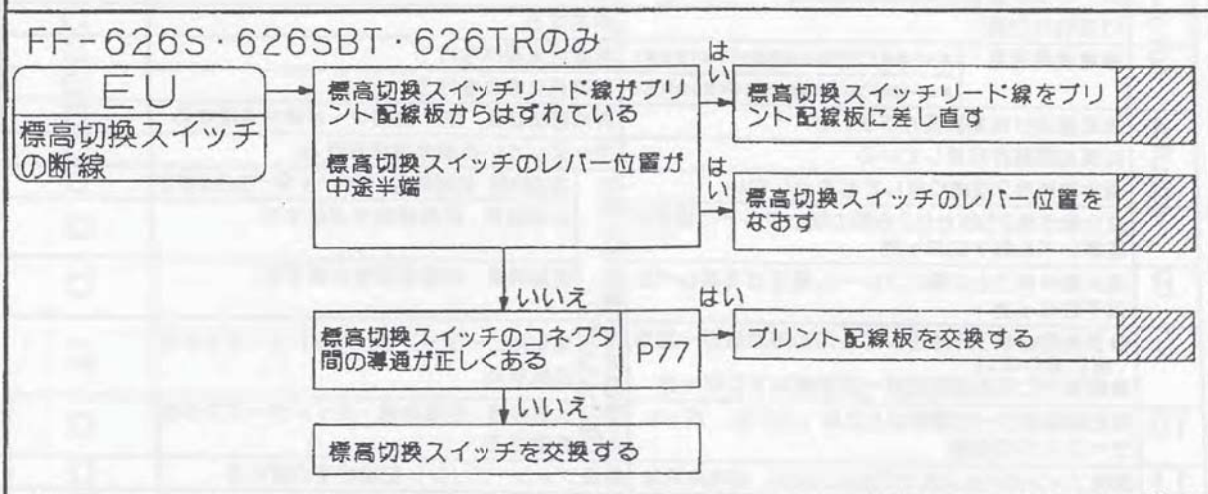 FF-626S・626SBT・626TRのみ
EU
標高切換スイッチ
の断線
標高切換スイッチリード線がプリ
ント配線板からはずれている
標高切換スイッチのレバー位置が
中途半端
はい
標高切換スイッチリード線をプリ
ント配線板に差し直す
はい
標高切換スイッチのレバー位置を
なおす
いいえ
標高切換スイッチのコネクタ
間の導通が正しくある
P77
はい
プリント配線板を交換する
いいえ
標高切換スイッチを交換する